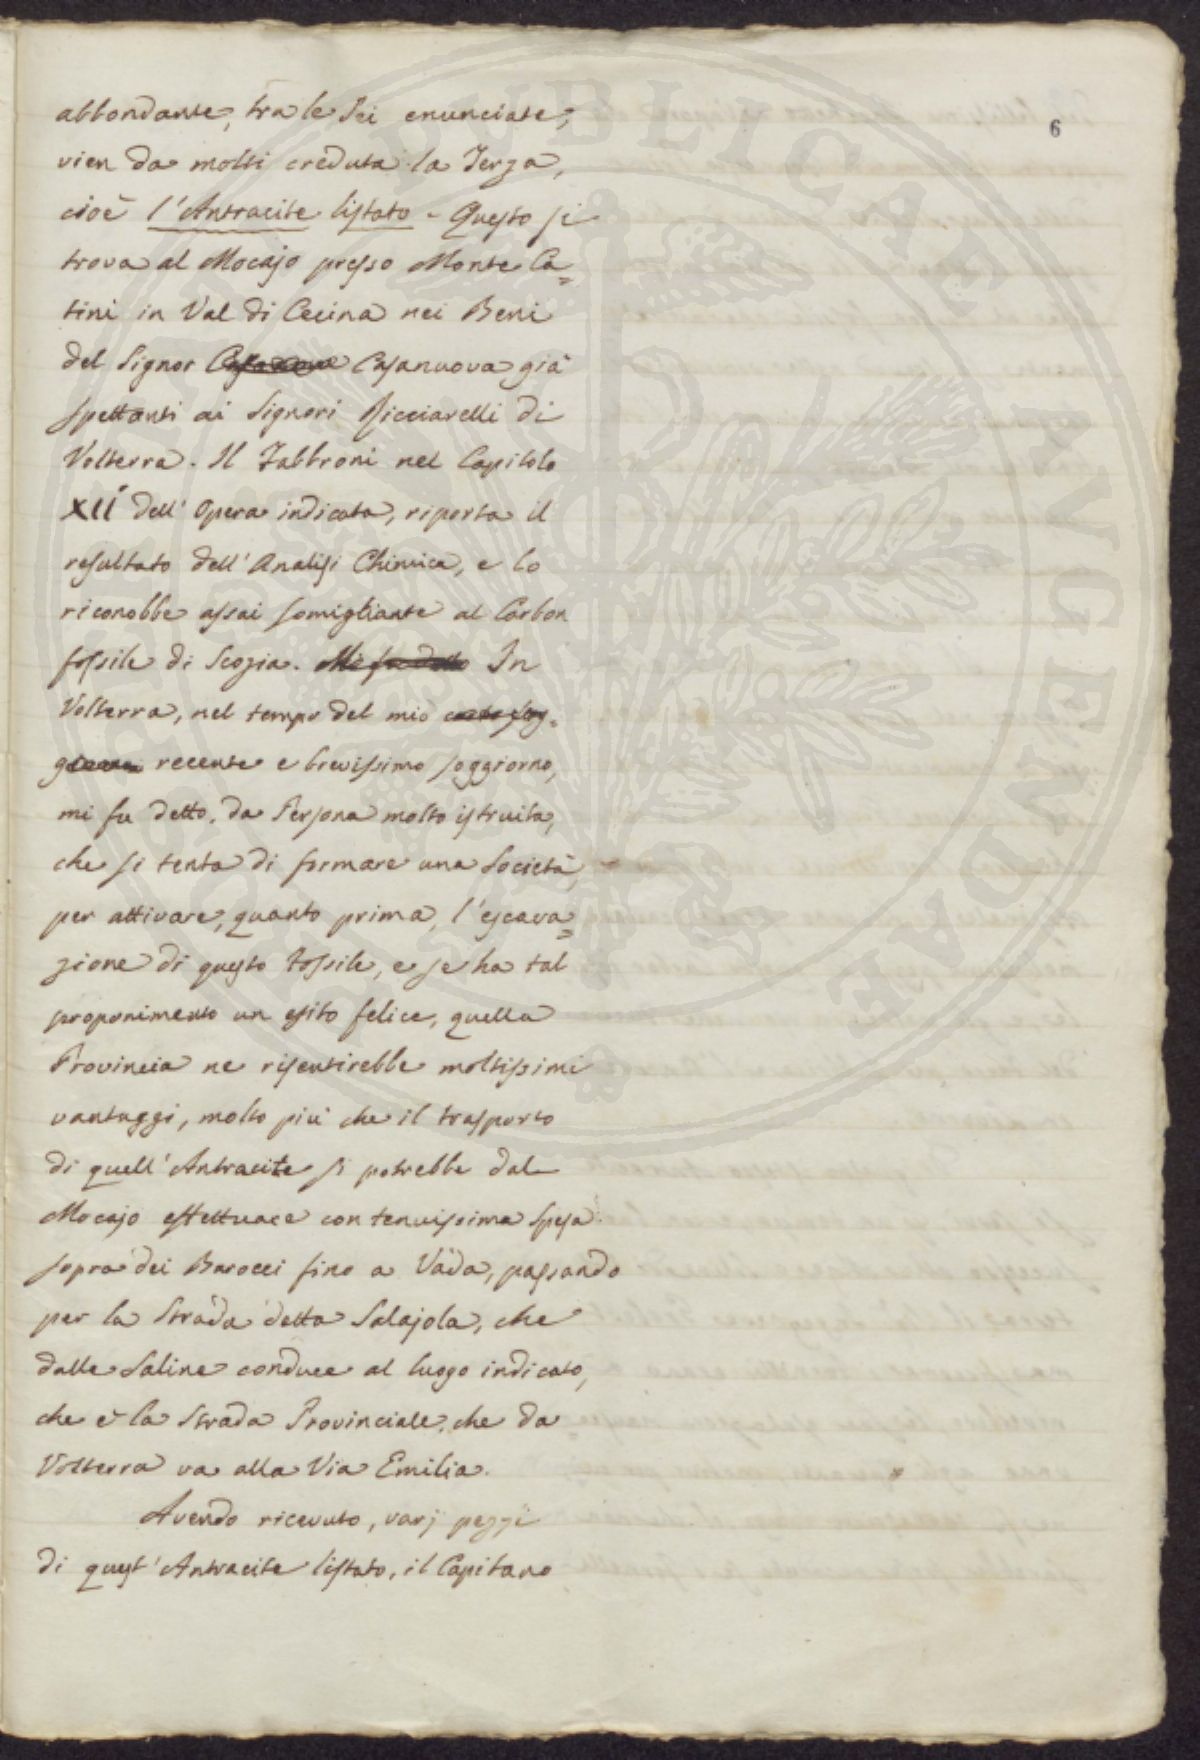 6
abbondante, tra le Sei enunciate,
vien da molti creduta la Terza,
cioè l'Antracite listato - Questo si
trova al Mocajo presso Monte Ca=
tini in Val di Cecina nei Beni
del Signor Casanuova già
spettanti ai Signori Ricciarelli di
Volterra. Il Fabbroni nel Capitolo
XII° dell' Opera indicata, riporta il
resultato dell'Analisi Chimica, e lo
riconobbe assai somigliante al Carbon
fossile di Scozia. Mi fu detto In
Volterra, nel tempo del mio
recente e brevissimo soggiorno,
mi fu detto, da Persona molto istruita,
che si tenta di formare una Società,
per attivare, quanto prima, l'escava=
zione di questo Fossile, e se ha tal
proponimento un esito felice, quella
Provincia ne risentirebbe moltissimi
vantaggi, molto più che il trasporto
di quell'Antracite si potrebbe dal
Mocajo effettuare con tenuissima spesa
sopra dei Barocci fino a Vada, passando
per la Strada detta Salajola, che
dalle Saline conduce al luogo indicato,
che è la Strada Provinciale, che da
Volterra va alla Via Emilia.
Avendo ricevuto, varj pezzi
di quest'Antracite listato, il Capitano